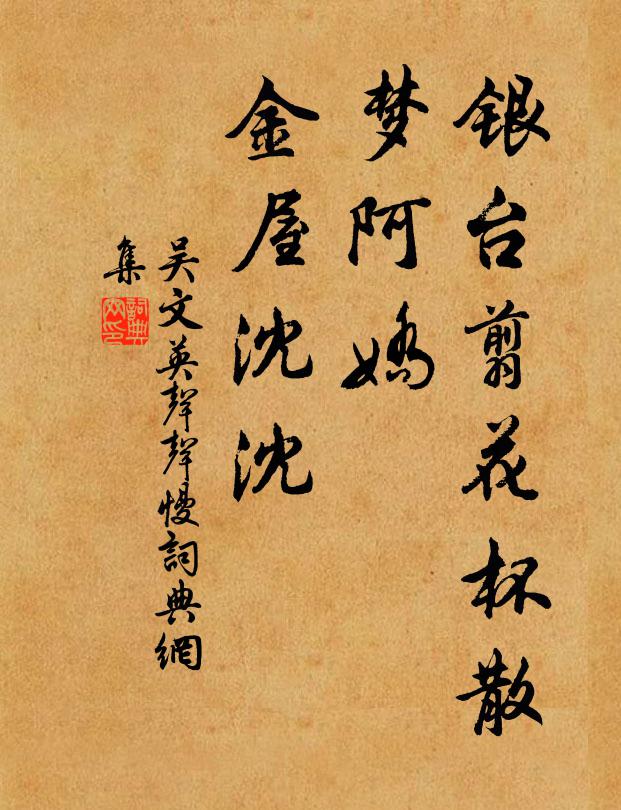 银台翦花杯散
梦阿娇
金屋沈沈
吴文英聲聲慢詞典網
集